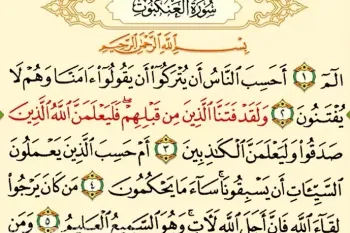 سُورَةُ العَنكَبُوتِ
بِسْمِ اللَّهِ الرَّحْمَٰنِ الرَّحِيمِ
الٓمٓ ١ أَحَسِبَ النَّاسُ أَن يُتْرَكُوٓا۟ أَن يَقُولُوٓا۟ ءَامَنَّا وَهُمْ لَا
يُفْتَنُونَ ٢ وَلَقَدْ فَتَنَّا الَّذِينَ مِن قَبْلِهِمْ ۖ فَلَيَعْلَمَنَّ اللَّهُ الَّذِينَ
صَدَقُوا۟ وَلَيَعْلَمَنَّ الْكَٰذِبِينَ ٣ أَمْ حَسِبَ الَّذِينَ يَعْمَلُونَ
السَّيِّـَٔاتِ أَن يَسْبِقُونَا ۚ سَآءَ مَا يَحْكُمُونَ ٤ مَن كَانَ يَرْجُوا۟
لِقَآءَ اللَّهِ فَإِنَّ أَجَلَ اللَّهِ لَـَٔاتٍ ۚ وَهُوَ السَّمِيعُ الْعَلِيمُ ٥ وَمَن